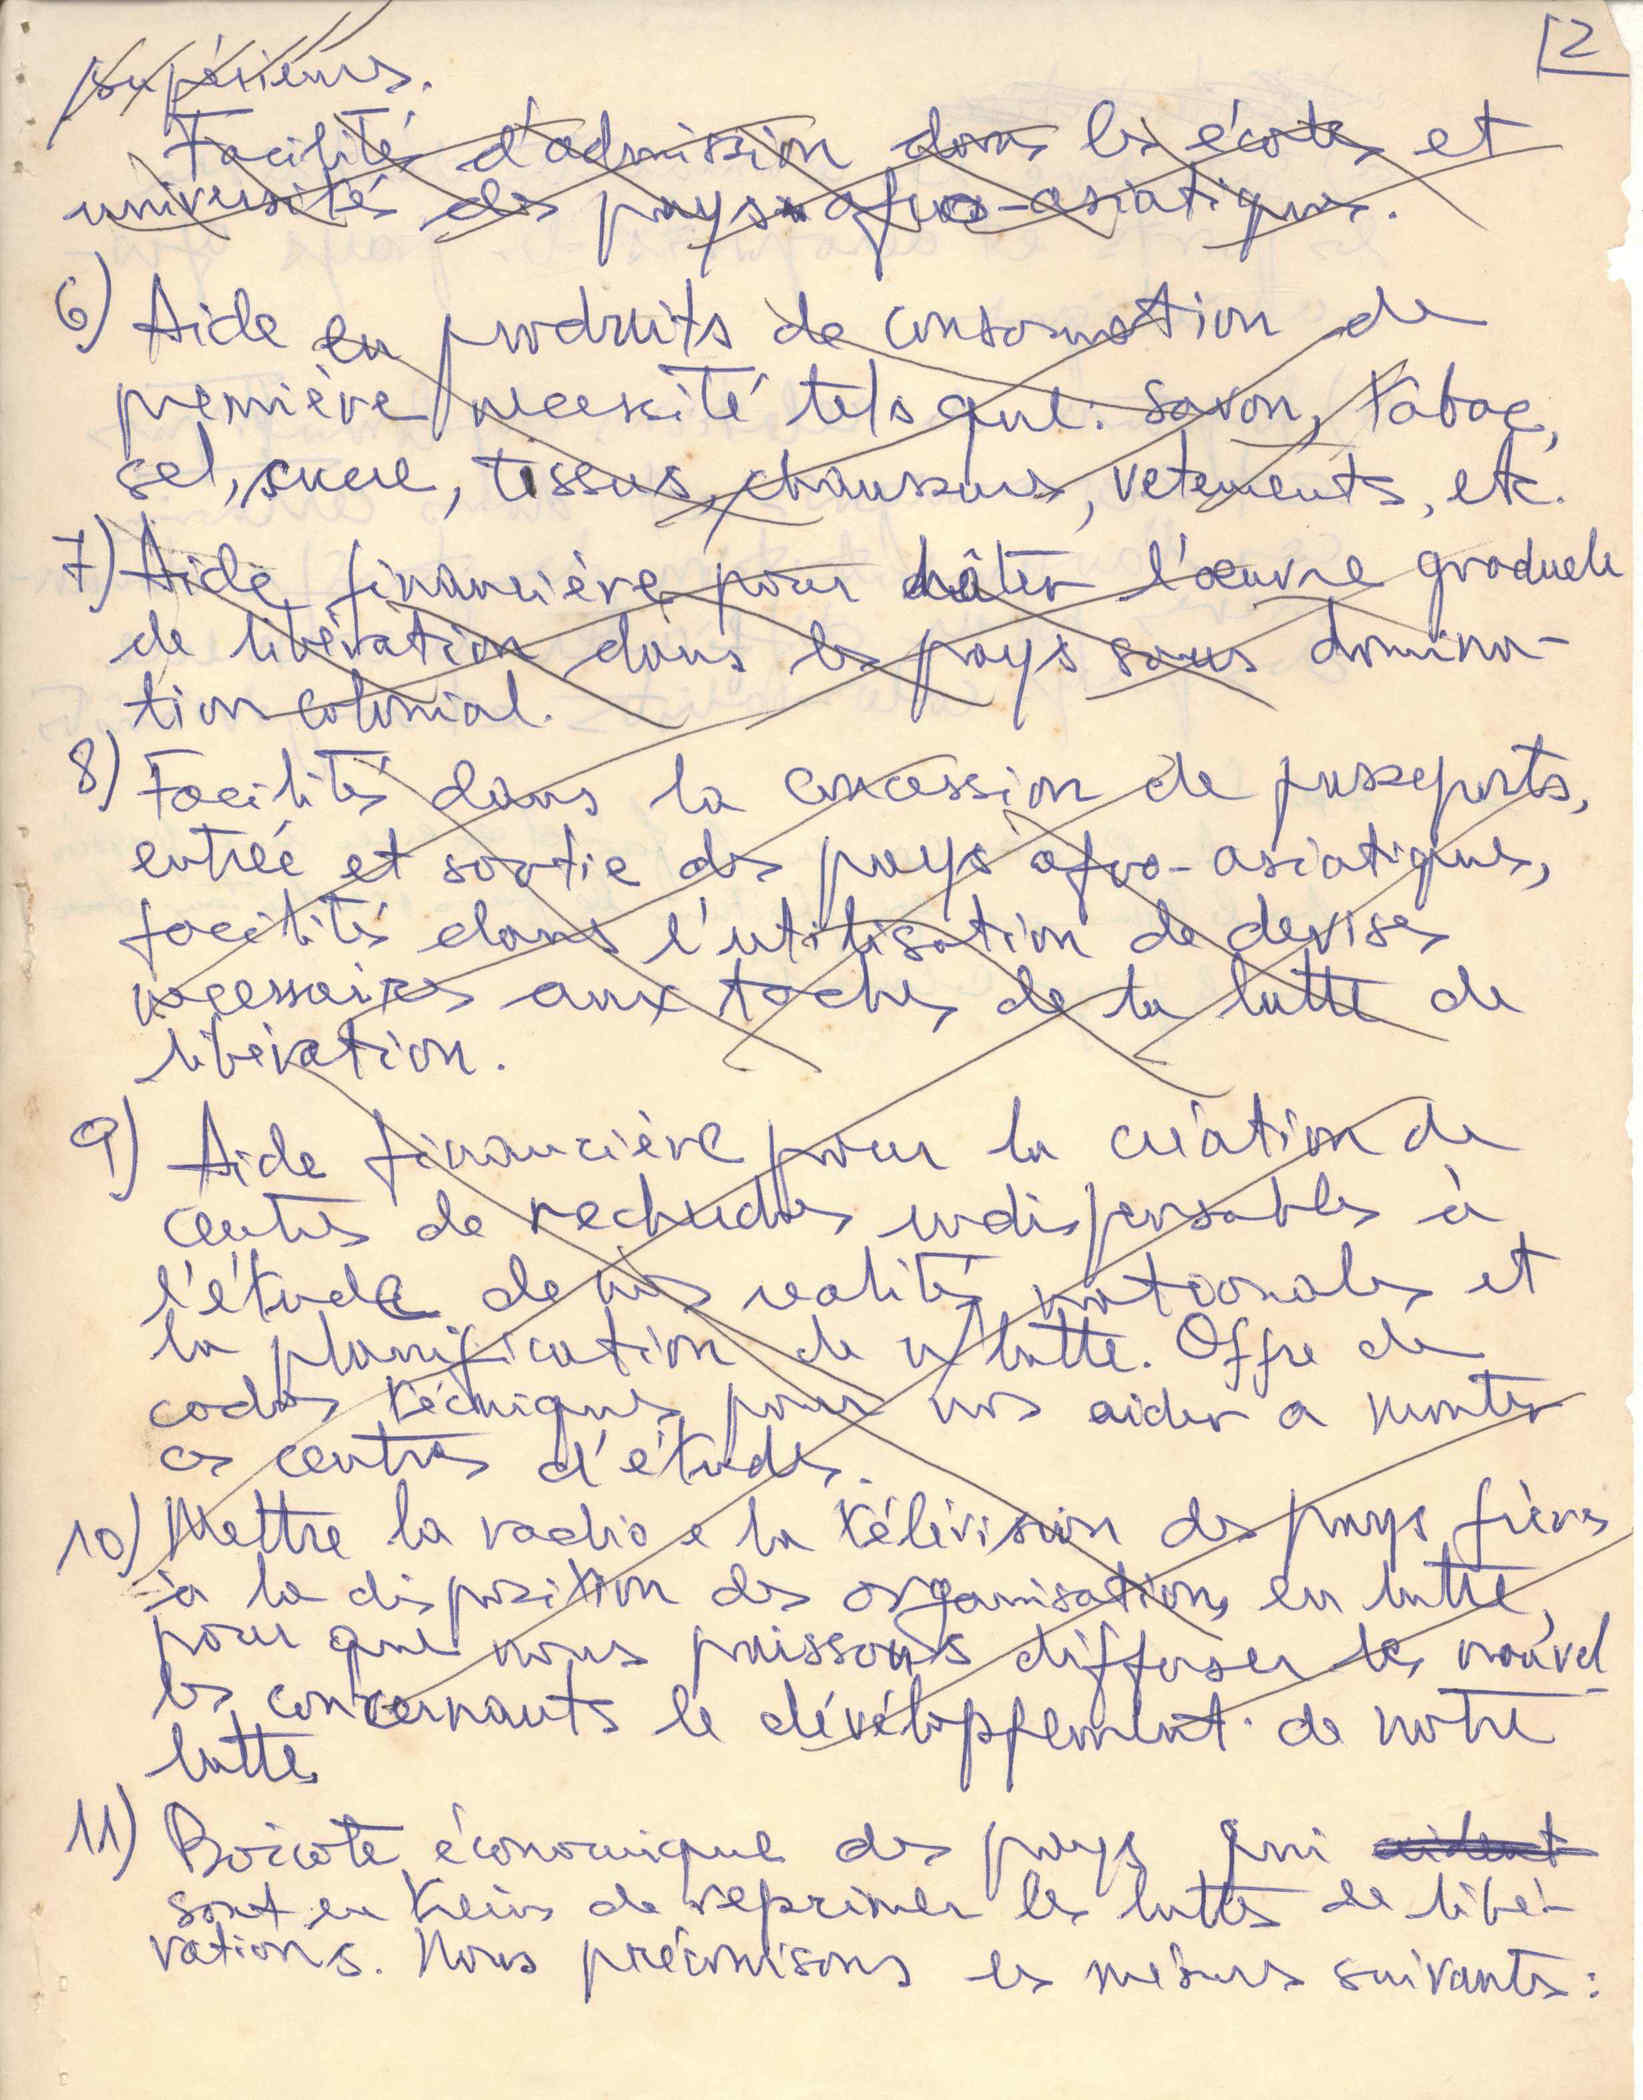 2
supérieurs.
Facilités d'admission dans les écoles et
universités des pays afro-asiatiques.
6) Aide en produits de consomation de
première necessité tels que: savon, tabac,
sel, sucre, tissus, chaussures, vetements, etc.
7) Aide financière pour hâter l'œuvre graduele
de libération dans les pays sous domina-
tion colonial.
8) Facilités dans la concession de passeports,
entrée et sortie des pays afro-asiatiques,
facilités dans l'utilisation de devises
necessaires aux taches de la lutte de
libération.
9) Aide financière pour la création de
centres de recherches indispensables à
l'étude de nos realités nationales et
la planification de n/lutte. Offre de
cadres técniques pour nos aider a monter
ces centres d'études.
10) Mettre la radio e la télévision des pays frères
à la disposition des organisations en lutte,
pour que nous puissons diffuser les nouvel
les concernants le dévéloppement de notre
lutte
11) Boicote économique des pays qui aident
sont en trein de reprimer les luttes de libé-
rations. Nous préconisons les mésures suivantes: